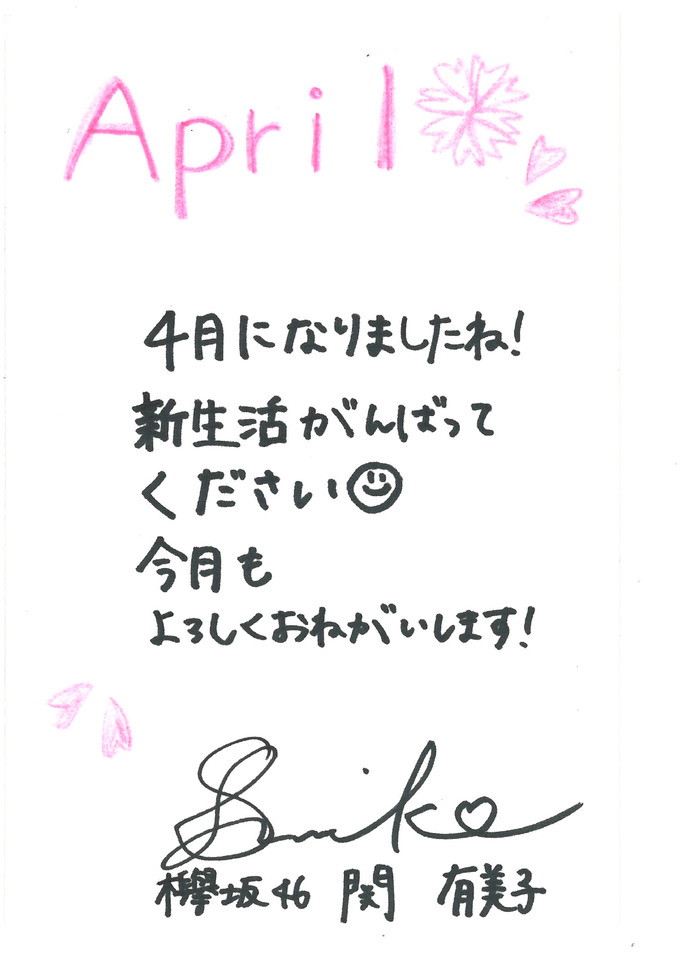 April
4月になりましたね!
新生活がんばって
ください
今月も
よろしくおねがいします!
Yumiko
欅坂46 関 有美子